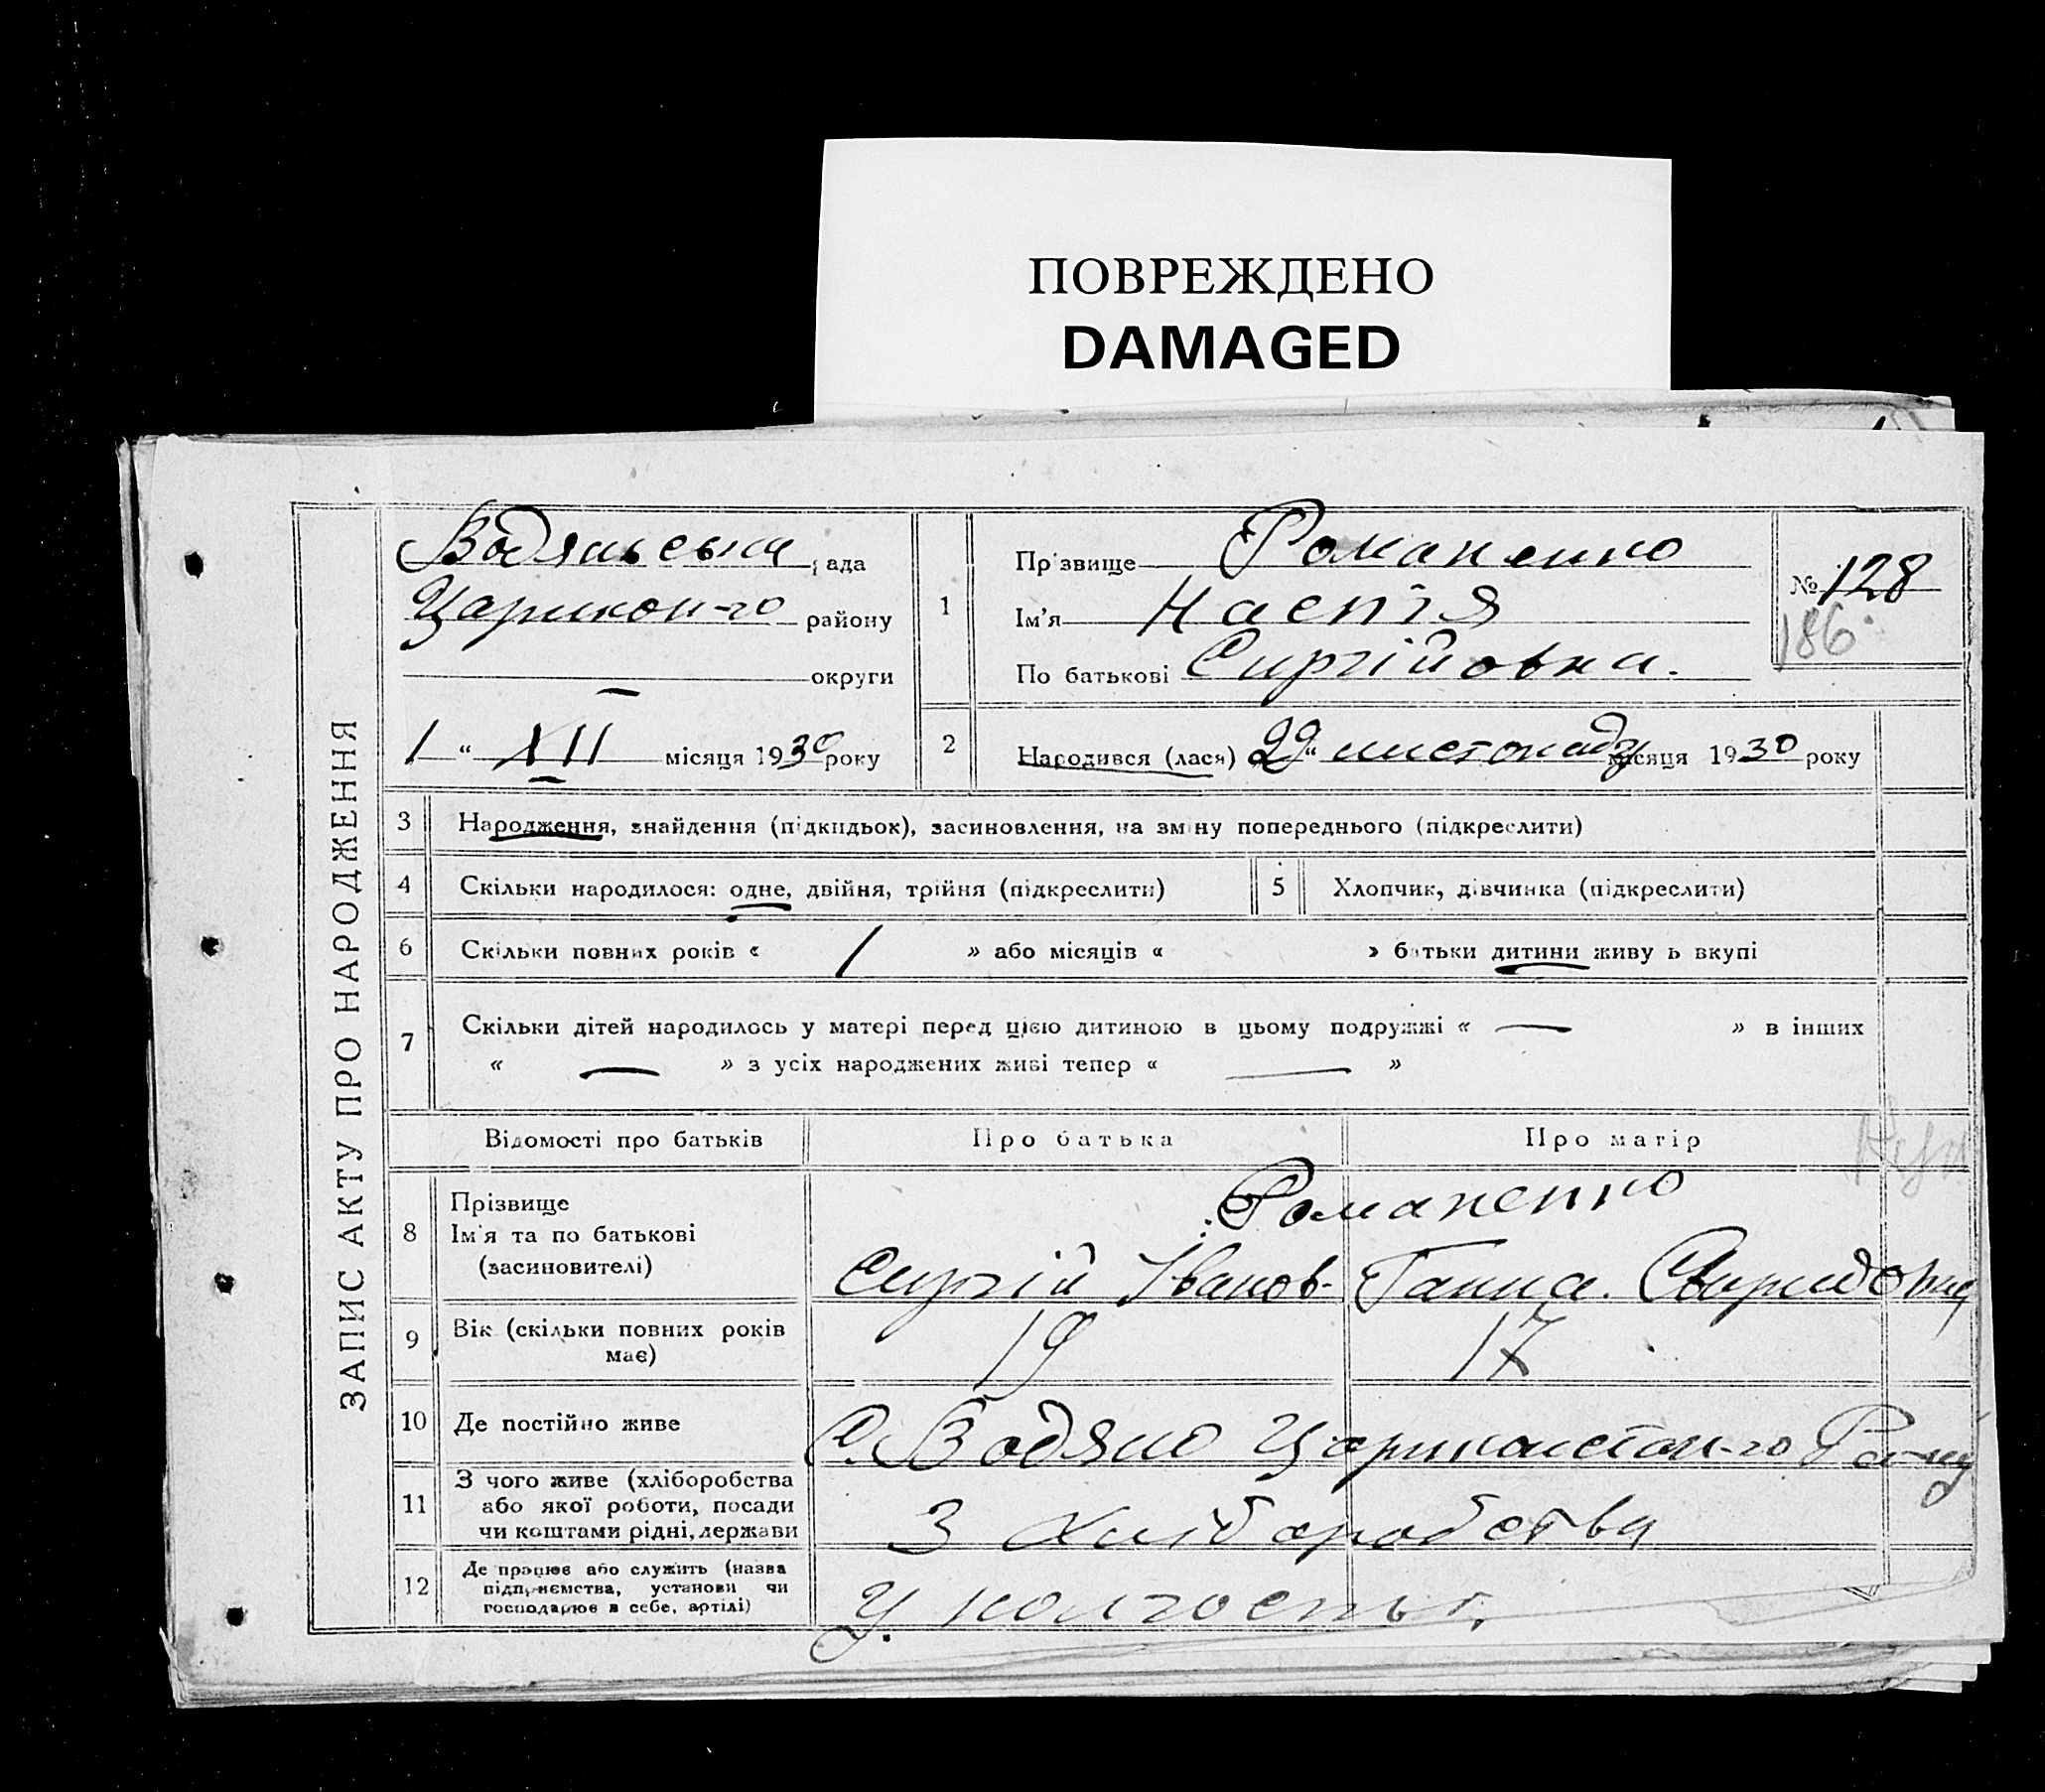 ПОВРЕЖДЕНО
DAMAGED
ЗАПИС АКТУ ПРО НАРОДЖЕННЯ
Водянська рада
Царичан-го району
округи
1 “ XII місяця 1930 року
1
Прізвище Романенко
Ім'я Настя
По батькові Сиргійовна.
№ 128
186
2 Народився (лася) 29 “ листопаду місяця 1930 року
3 Народження, знайдення (підкидьок), засиновлення, на зміну попереднього (підкреслити)
4 Скільки народилося: одне, двійня, трійня (підкреслити) 5 Хлопчик, дівчинка (підкреслити)
6 Скільки повних років « 1 » або місяців « » батьки дитини живуть вкупі
7 Скільки дітей народилось у матері перед цією дитиною в цьому подружжі « — » в інших
« — » з усіх народжених живі тепер « — »
Відомості про батьків Про батька Про матір
8 Прізвище
Ім'я та по батькові
(засиновителі)
Романенко
Сиргій Іванов- Ганна. Свиридовна
9 Вік (скільки повних років
має)
19 17
10 Де постійно живе С. Водяно
11 З чого живе (хліборобства
або якої роботи, посади
чи коштами рідні, держави
З хліборобства
12 Де працює або служить (назва
підприємства, установи чи
господарює в себе, артілі)
У